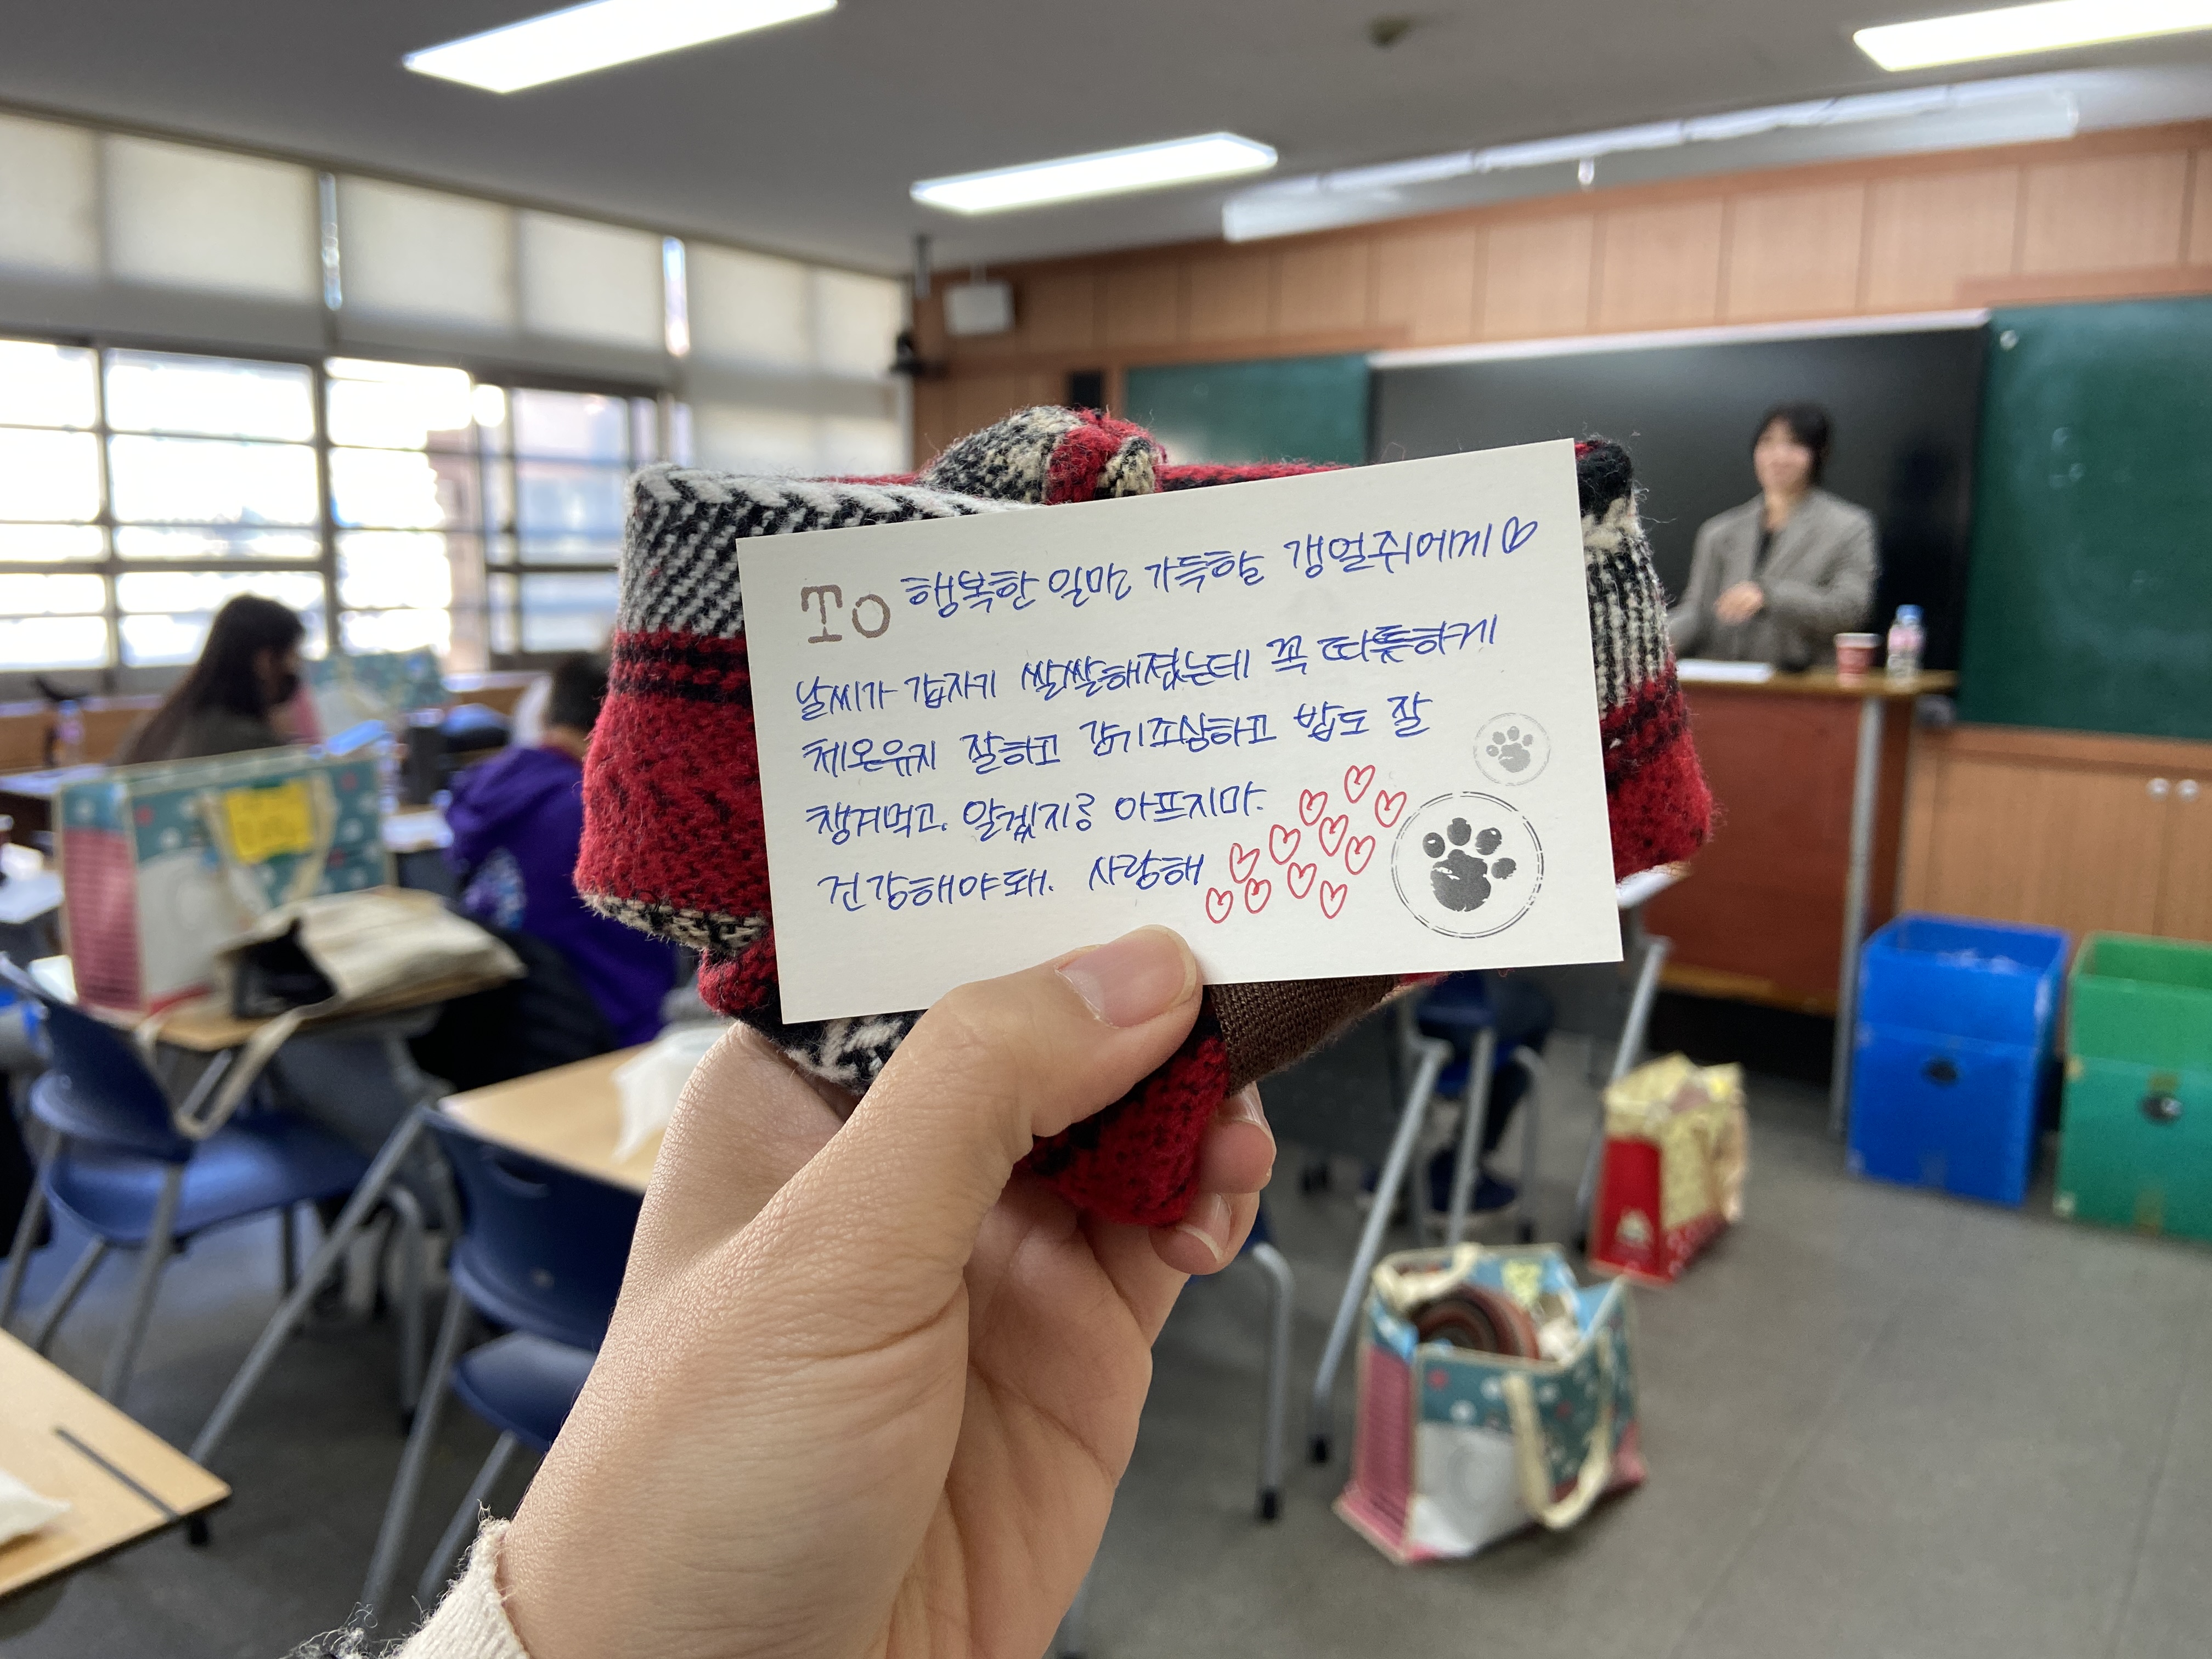 To 행복한 일만 가득할 갱얼쥐에게♡
날씨가 갑자기 쌀쌀해졌는데 꼭 따뜻하게
체온유지 잘하고 감기조심하고 밥도 잘
챙겨먹고. 알겠지? 아프지마.
건강해야돼. 사랑해